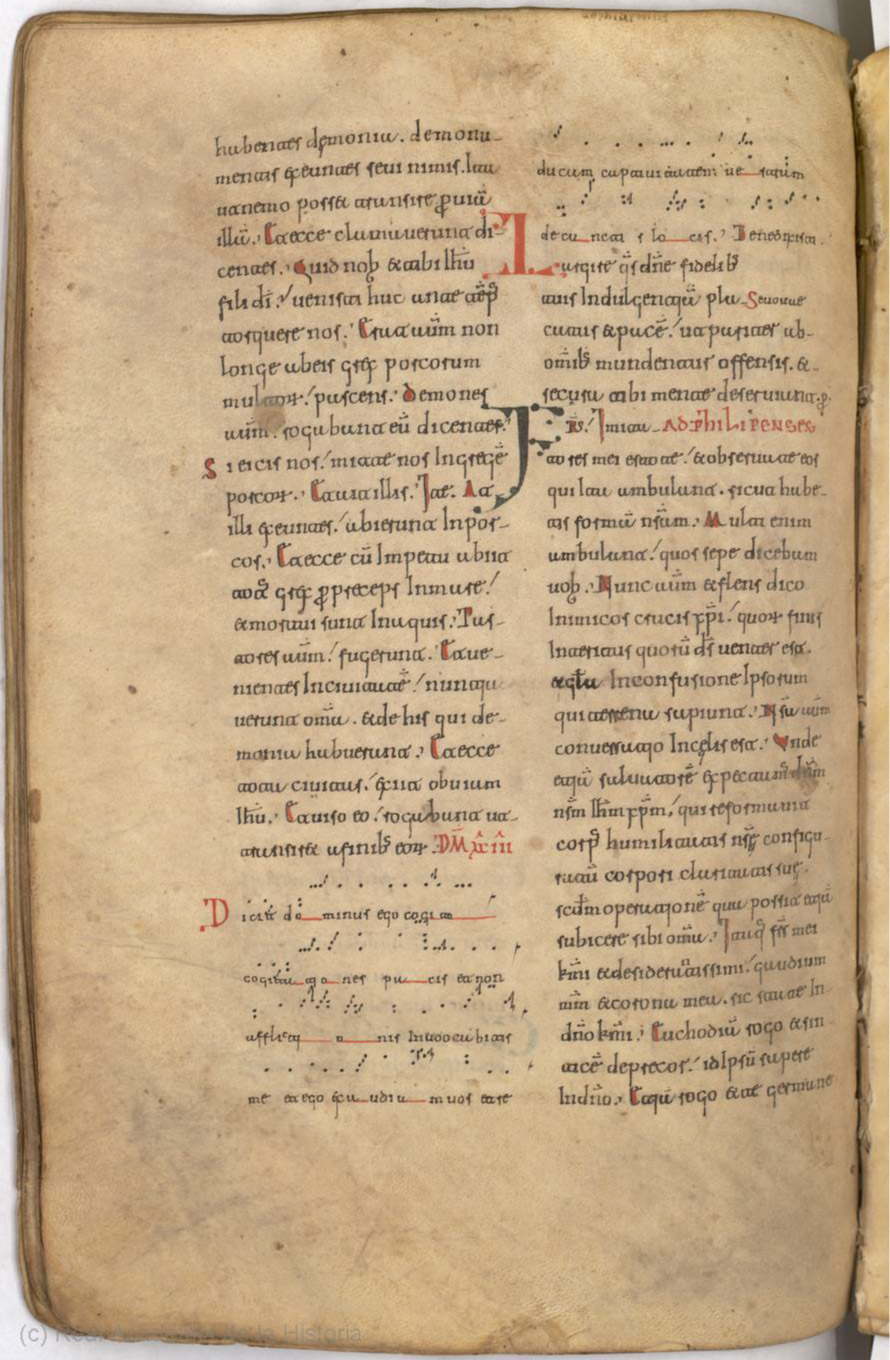 habentes demonia. demonu-
mentis exeuntes seui nimis. Ita
ut nemo posset transire p̱ uiā
illā. Et ecce clamauerunt di-
centes. Quid nob̄ & tibi Ihū
fili dī. uenisti huc ante tēp̄
torquere nos. Erat aūm non
longe ab eis grex porcorum
multor pascens. Demones
aūm. rogabant eū dicentes.
Si eicis nos. mitte nos In gregē
porcor. Et ait illis. Ite. At
illi exeuntes. abierunt In por-
cos. Et ecce cū Impetu abiit
totꝰ grex p̱ preceps In mare.
& mortui sunt In aquis. Pas-
tores aūm. fugerunt. Et ue-
nientes In ciuitatē. nuntia
uerunt omā. & de his qui de-
monia habuerant. Et ecce
tota ciuitas. exiit obuiam
Ihū. Et uiso eo. rogabant ut
transiret a finib; eor. DM̄ XXIII
Dicit dominus ego cogito
cogitationes pacis et non
afflictionis Inuocabitis
me et ego exaudiam uos et re
ducam captiuitatem uestram
de cunctis locis. Benedixisti.
Largire qs dn̄e fidelib;
tuis Indulgentiā pla
catus & pacē. ut pariter ab
omīb; mundentur offensis. &
secura tibi mente deseruiant. p̱.
FR̄S. Imita AD PhILIPENSES
tores mei estote. & obseruate eos
qui Ita ambulant. sicut habe-
tis formā nr̄am. Multi enim
ambulant. quos sepe dicebam
uob̄. Nunc aūm & flens dico
Inimicos crucis xp̄i. quor finis
Interitus quorū ds̄ uenter est.
& glā In confusione Ipsorum
qui terrena sapiunt. Nr̄a aūm
conuersatio In celis est. Unde
etiā saluatorē expectamꝰ dn̄m
nr̄m Ihm̄ xp̄m, qui reformauit
corpꝰ humilitatis nr̄e configu-
ratū corpori claritatis sue.
scdm̄ operationē qua possit etiā
subicere sibi omā. Itaq fr̄s mei
kmi & desideratissimi. gaudium
mm̄ & corona mea. sic state In
dn̄o kmi. Euchodiā rogo & sin
ticē deprecor. id Ipsū sapere
In dn̄o. Etiā rogo & te germane